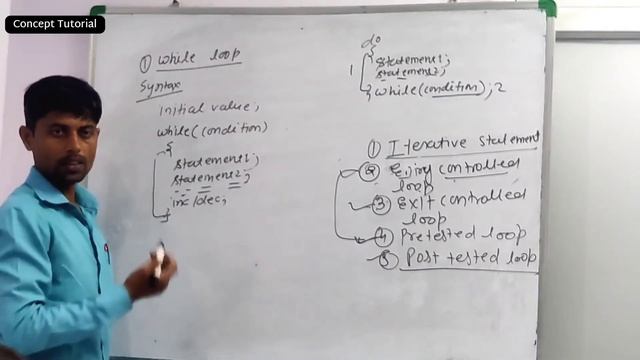 Concept Tutorial
① while loop
Syntax
initial value;
while(condition)
{
statement1;
statement2;
inc/dec;
}
do
{
statement1;
1
statement2;
} while(condition); 2
① Iterative statement
② controlled
loop
③ Exit controlled
loop
④ Pretested loop
⑤ Post tested loop